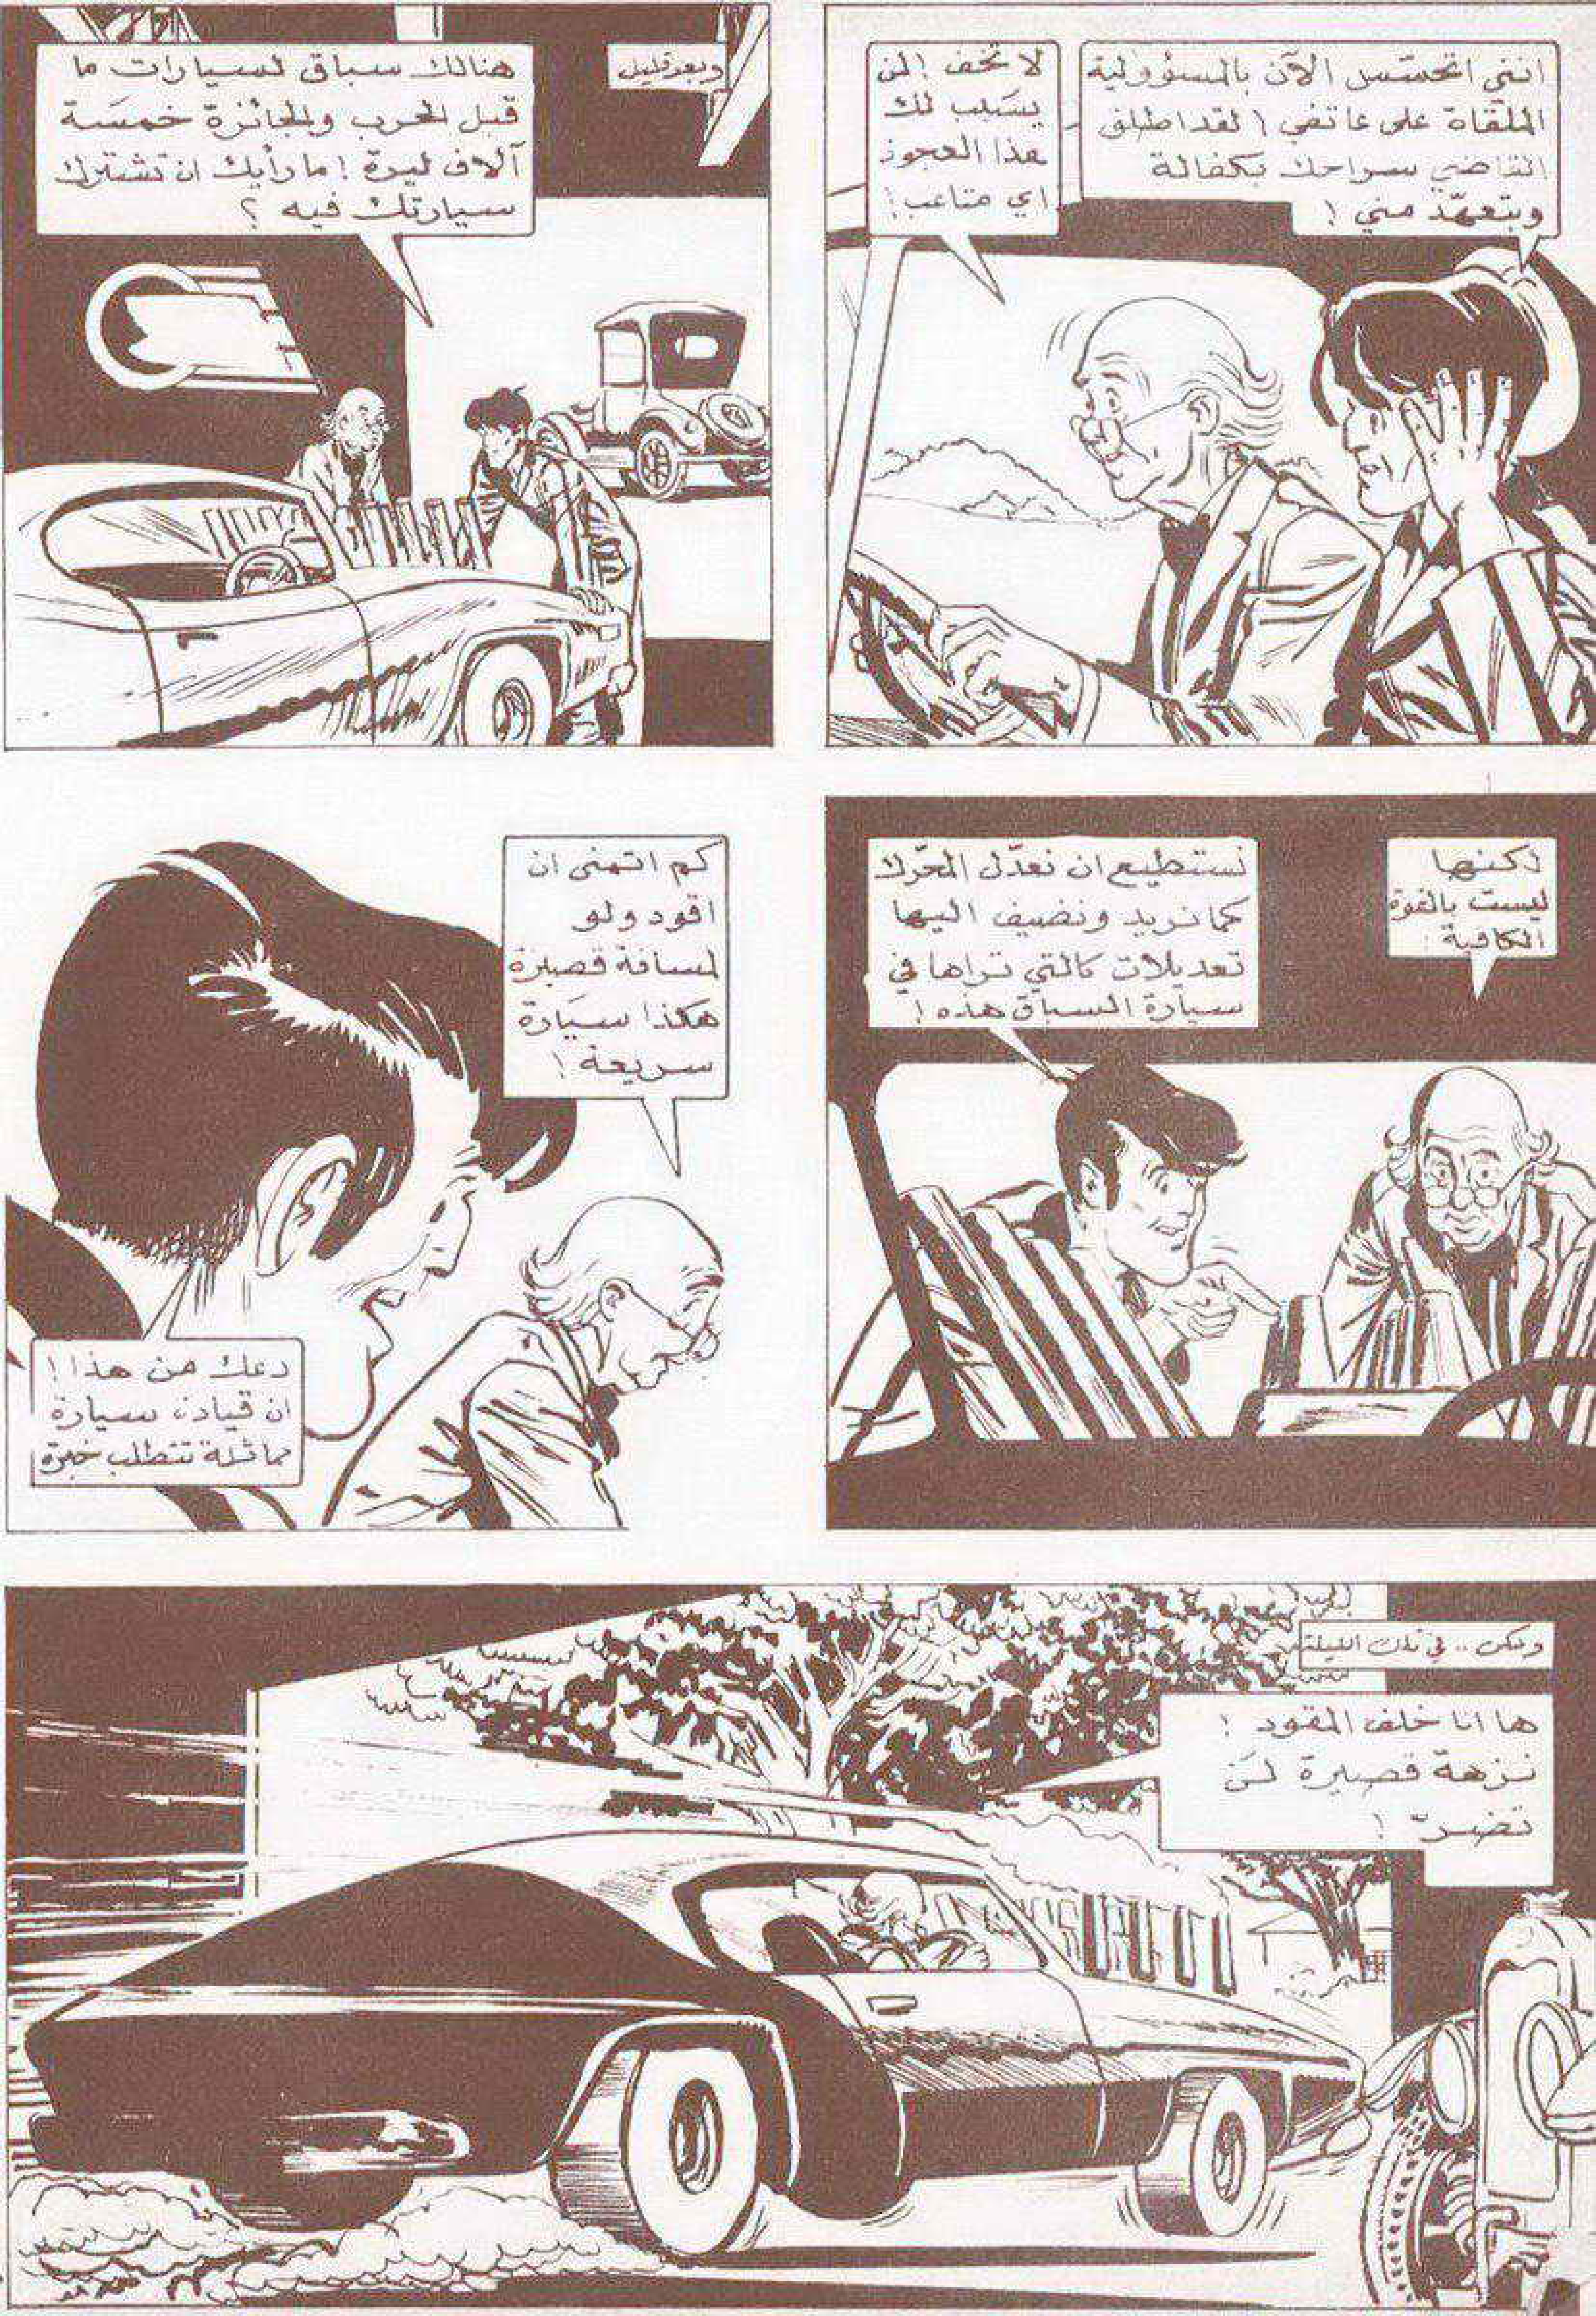 انني اتحسّس الآن بالمسؤولية
الملقاة على عاتقي ! لقد اطلق
القاضي سراحك بكفالة
وبتعهّد مني !
لا تخف ! لن
يسبب لك
هذا العجوز
اي متاعب !
وبعد قليل
هنالك سباق لسيارات ما
قبل الحرب والجائزة خمسة
آلاف ليرة ! ما رأيك ان تشترك
سيارتك فيه ؟
لكنها
ليست بالقوة
الكافية !
نستطيع ان نعدّل المحرّك
كما نريد ونضيف اليها
تعديلات كالتي تراها في
سيارة السباق هذه !
كم اتمنى ان
اقود ولو
لمسافة قصيرة
هكذا سيّارة
سريعة !
دعك من هذا !
ان قيادة سيارة
مماثلة تتطلب خبرة
ولكن .. في تلك الليلة
ها انا خلف المقود !
نزهة قصيرة لن
تضرّ !